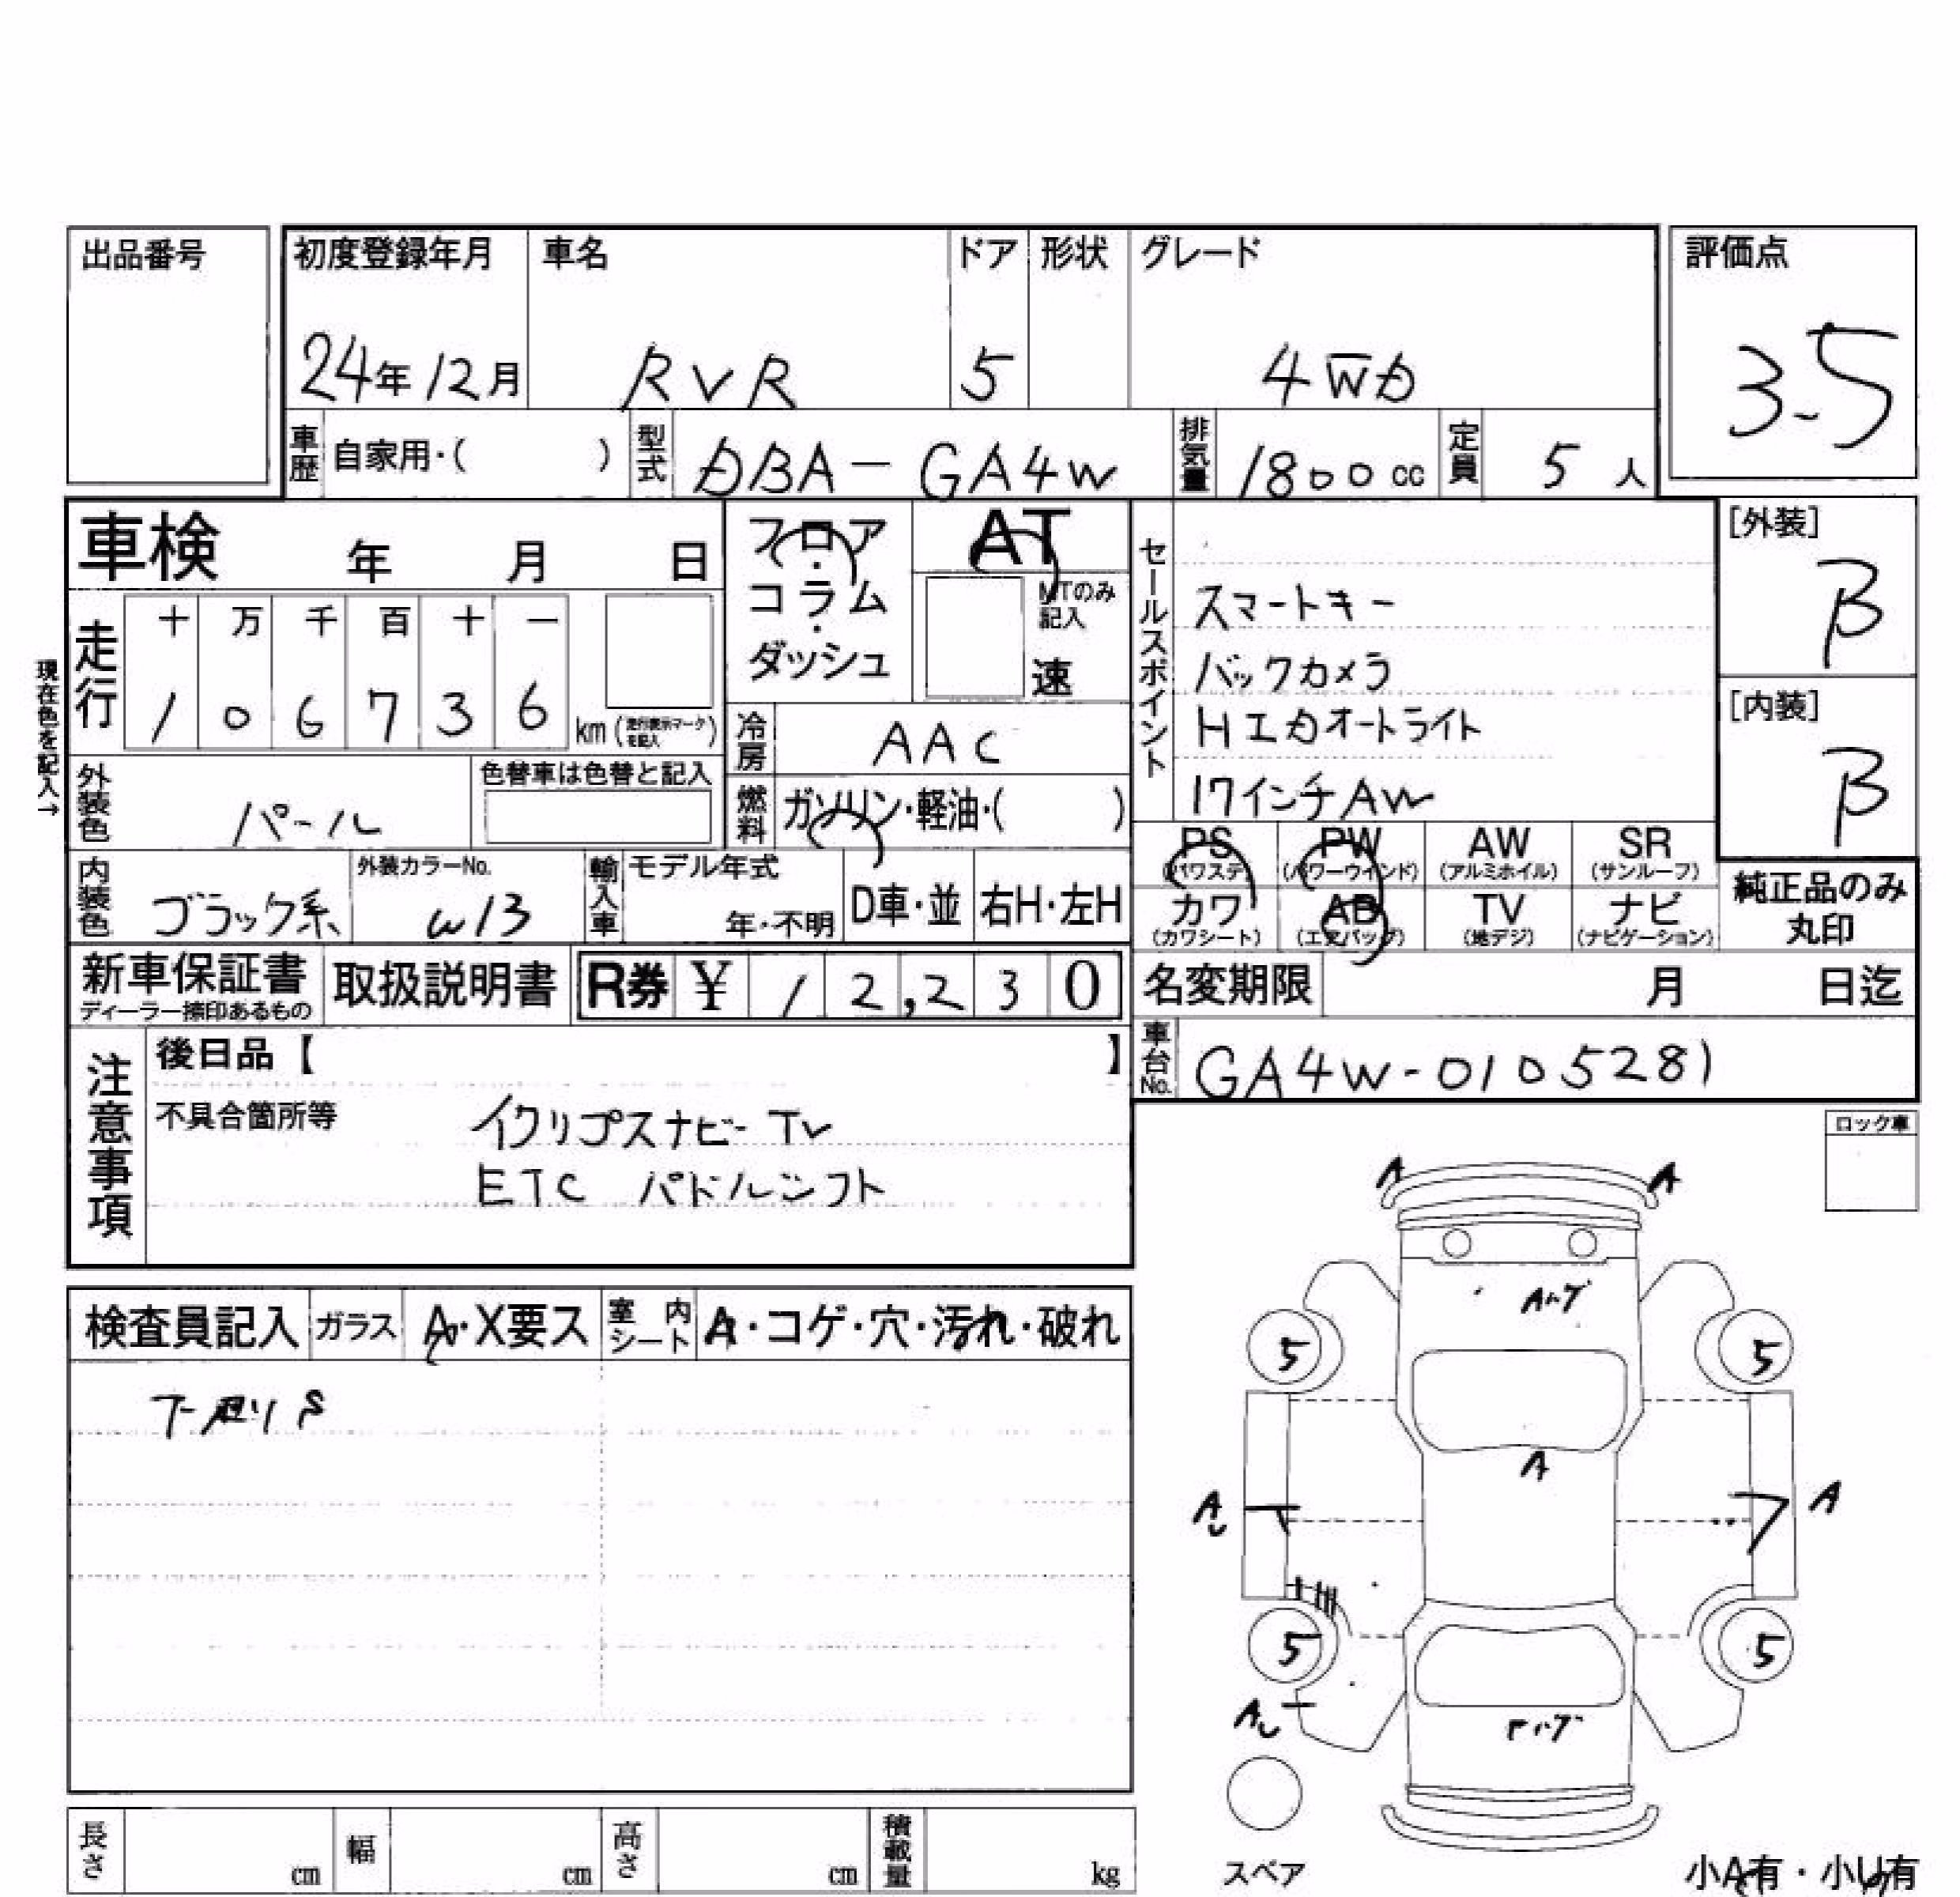 出品番号
初度登録年月 車名 ドア 形状 グレード
24年12月 RVR 5 4WD
評価点
3.5
車歴 自家用・( ) 型式 DBA-GA4W 排気量 1800cc 定員 5人
車検 年 月 日
フロア・コラム・ダッシュ
AT
MTのみ記入
速
現在色を記入→
走行
十 万 千 百 十 一
1 0 6 7 3 6 km (走行表示マークを記入)
冷房 AAC
外装色 パール
色替車は色替と記入
燃料 ガソリン・軽油・( )
セールスポイント
スマートキー
バックカメラ
HIDオートライト
17インチAW
[外装]
B
[内装]
B
PS (パワステ) PW (パワーウインド) AW (アルミホイル) SR (サンルーフ)
カワ (カワシート) AB (エアバッグ) TV (地デジ) ナビ (ナビゲーション)
純正品のみ丸印
内装色 ブラック系 外装カラーNo. W13
輸入車 モデル年式 年・不明 D車・並 右H・左H
新車保証書 ディーラー捺印あるもの
取扱説明書
R券 ¥ 12,230
名変期限 月 日迄
車台No. GA4W-0105281
注意事項
後日品【 】
不具合箇所等 イクリプスナビーTV
ETC パドルシフト
ロック車
検査員記入 ガラス A・X要ス 室内シート A・コゲ・穴・汚れ・破れ
下廻りS
A A
5 5
A
AU A
5 5
AU
スペア
小A有・小U有
長さ cm 幅 cm 高さ cm 積載量 kg